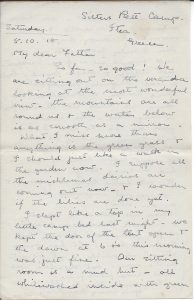 Sisters Rest Camp.
Saturday
Greece
5.10.18
My dear Father
So far so good! We
are sitting out on the verandah
looking at the most wonderful
view - the mountains are all
round us & the water below
is as smooth as a mirror.
What I miss more than
anything is the green grass &
I should just like a walk
the garden now. I suppose all
the michaelmas daisies are
coming out now - & I wonder
if the lilies are done yet.
I slept like a top in my
little camp bed last night - we
kept the door of the tent open &
the dawn at 6 to this morning
was just fine. Our sitting
room is a mud hut - all
whitewashed inside with green